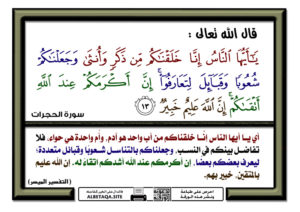 قال الله تعالى :
يَٰٓأَيُّهَا ٱلنَّاسُ إِنَّا خَلَقْنَٰكُم مِّن ذَكَرٍ وَأُنثَىٰ وَجَعَلْنَٰكُمْ
شُعُوبًا وَقَبَآئِلَ لِتَعَارَفُوٓا۟ إِنَّ أَكْرَمَكُمْ عِندَ ٱللَّهِ
أَتْقَىٰكُمْ إِنَّ ٱللَّهَ عَلِيمٌ خَبِيرٌ ١٣
سورة الحجرات
أي يا أيها الناس إنا خلقناكم من أب واحد هو آدم، وأم واحدة هي حواء، فلا
تفاضل بينكم في النسب، وجعلناكم بالتناسل شعوبًا وقبائل متعددة؛
ليعرف بعضكم بعضا، إن أكرمكم عند الله أشدكم اتقاءً له. إن الله عليم
بالمتقين، خبير بهم.
(التفسير الميسر)
ALBETAQA.SITE
احرص على طباعة
ونشر هذه الورقة